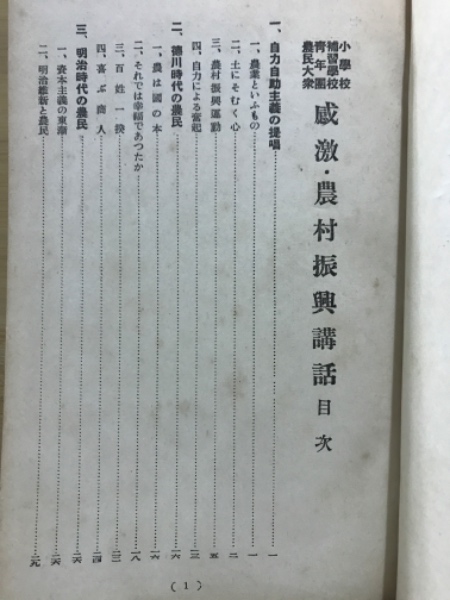 小學校
補習學校
青年團
農民大衆
感激・農村振興講話 目次
一、自力自助主義の提唱……一
一、農業といふもの……一
二、土にそむく心……二
三、農村振興運動……五
四、自力による奮起……
二、德川時代の農民……一六
一、農は國の本……一六
二、それでは幸福であつたか……一八
三、百姓一揆……
四、喜ぶ商人……
三、明治時代の農民……二六
一、資本主義の東漸……二六
二、明治維新と農民……二九
( 1 )